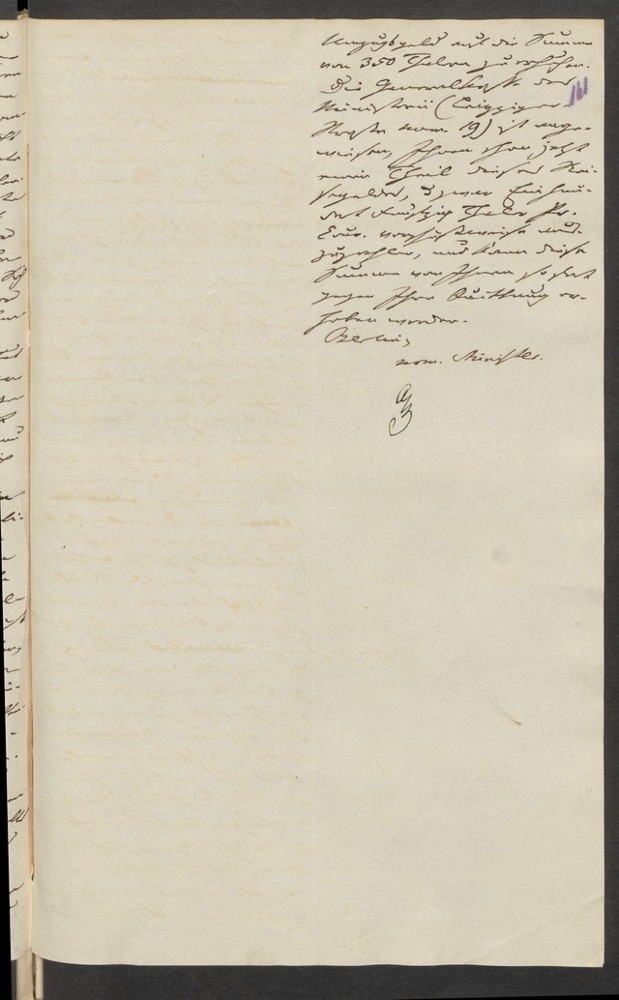 Umzugsgeld auf die Summe
von 350 Thalern zu erhöhen.
Die Generalkasse des
161
Ministerii (Leipziger
Straße nom. 19) ist ange-
wiesen, Ihnen schon jetzt
einen Theil dieser Rei-
segelder, u zwar Einhun-
dert Fünfzig Thaler Pr.
Cour. vorschußweise aus-
zuzahlen, und kann diese
Summe von Ihnen sofort
gegen Ihre Quittung er-
hoben werden.
Berlin,
nom. Ministri.